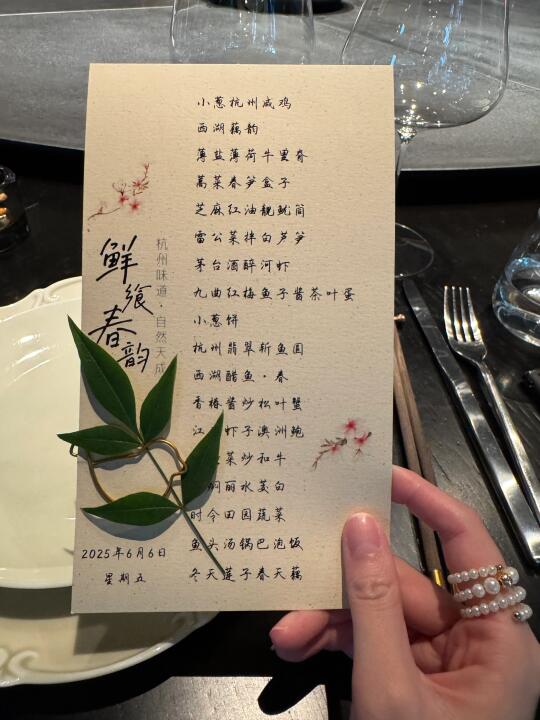 鲜飨春韵
杭州味道·自然天成
小葱杭州咸鸡
西湖藕韵
薄盐薄荷牛里脊
蒿菜春笋盒子
芝麻红油靓鱿筒
雷公菜拌白芦笋
茅台酒醉河虾
九曲红梅鱼子酱茶叶蛋
小葱饼
杭州翡翠斩鱼圆
西湖醋鱼·春
香椿酱炒松叶蟹
江 虾子澳洲鲍
菜炒和牛
焖丽水茭白
时令田园蔬菜
鱼头汤锅巴泡饭
冬天莲子春天藕
2025年6月6日
星期五